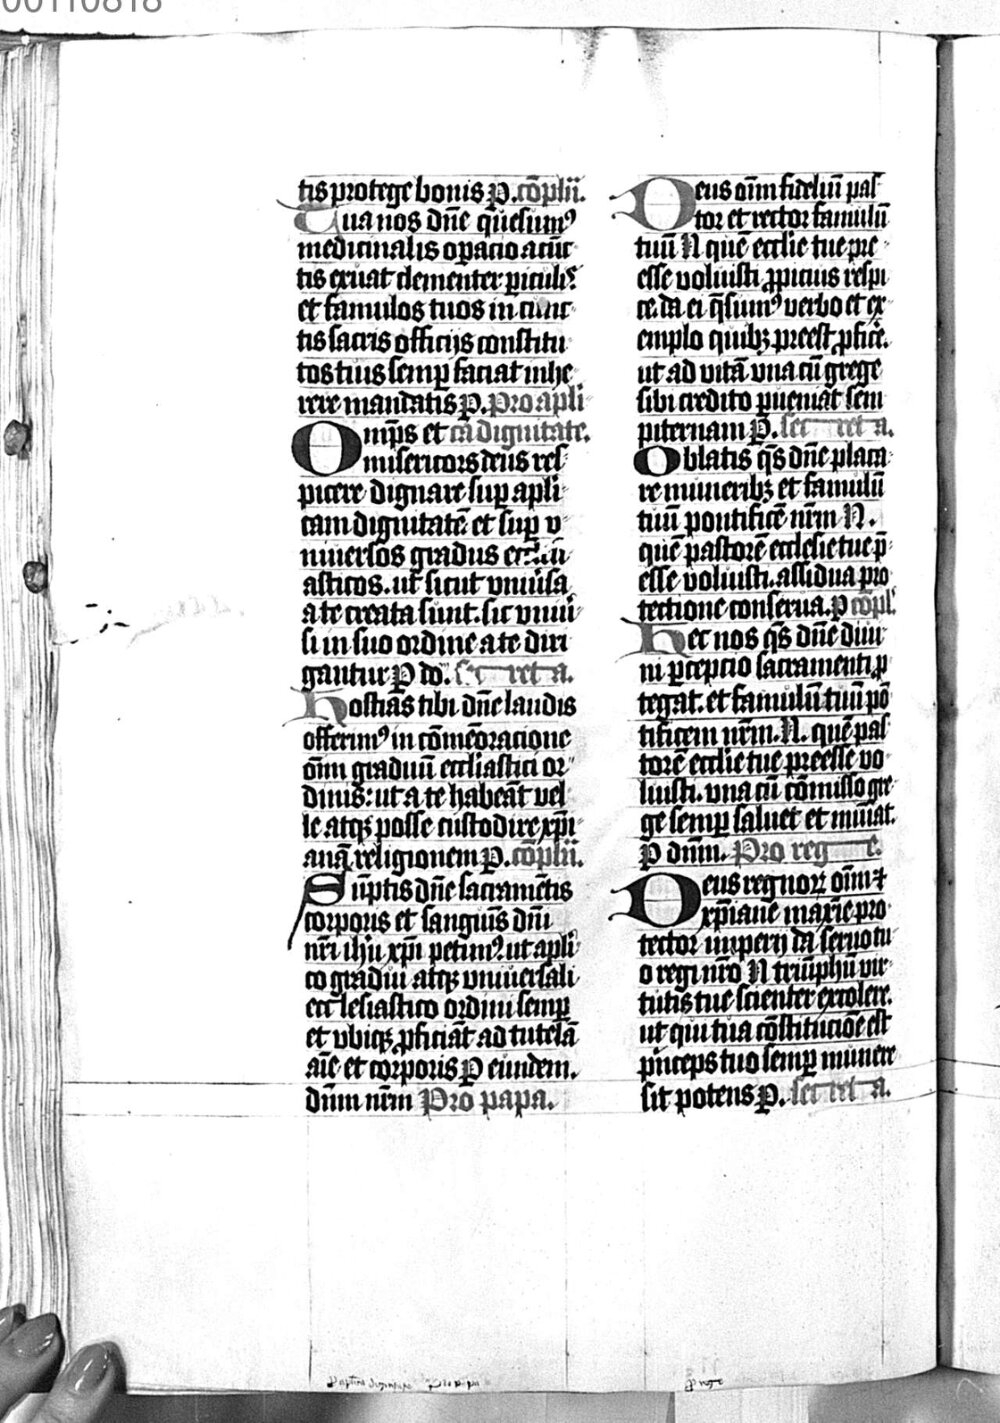 00110818
tis protege bonis P. co̅plii.
Tua nos dn̅e quesum⁹
medicinalis op̲acio a cu̅c
tis exuat clementer p̲iculis.
et famulos tuos in cunc
tis sacris officijs constitu
tos tuis semp̲ faciat inhe
rere mandatis P. Pro apli
Omp̅s et ca̅ dignitate.
misericors deus res
picere dignare sup̲ apli
cam dignitate̅ et sup̲ v
niuersos gradus
asticos. ut sicut vniu̅sa
a te creata sunt. sic vniu̅
si in suo ordine a te diri
gantur P do. Secreta.
Hostias tibi dn̅e laudis
offerim⁹ in co̅me̅oracione
oi̅m graduu̅ eccl̅iastici or
dinis: ut a te habea̅t vel
le atqꝫ posse custodire xp̅i
ana̅ religionem P. co̅plii.
Su̅ptis dn̅e sacrame̅tis
corporis et sanguis̅ dn̅i
nr̅i ih̅u xp̅i petim⁹. ut apli
co gradui atqꝫ vniuersali
ecclesiastico ordini semp̲
et vbiqꝫ p̲ficia̅t ad tutela̅
ai̅e et corporis P eundem.
dn̅m nr̅m Pro papa.
Deus oi̅m fideliu̅ pas
tor et rector famulu̅
tuu̅ N que̅ eccl̅ie tue pre
esse voluisti p̲picius respi
ce. da ei q̅sum⁹ verbo et ex
emplo quibꝫ preest p̲fice̅.
ut ad vita̅ vna cu̅ grege
sibi credito p̲ueniat sem
piternam P. secreta.
Oblatis q̅s dn̅e placa
re muneribꝫ et famulu̅
tuu̅ pontifice̅ nr̅m N.
que̅ pastore̅ ecclesie tue p̅
esse voluisti. assidua pro
tectione conserua. P co̅pl.
Hec nos q̅s dn̅e diui
ni p̲ceptio sacramenti p̲
tegat. et famulu̅ tuu̅ po̅
tificem nr̅m. N. que̅ pas
tore̅ eccl̅ie tue preesse vo
luisti. vna cu̅ co̅misso gre
ge semp̲ saluet et mu̅iat.
P dn̅m. Pro rege.
Deus regnorꝝ oi̅m ⁊
xp̅iane maxi̅e pro
tector imperij da seruo tu
o regi nr̅o N triu̅phu̅ vir
tutis tue scienter extolere.
ut qui tua co̅stitucio̅e est
p̅nceps tuo semp̲ munere
sit potens P. secreta.
Pro papa
P rege